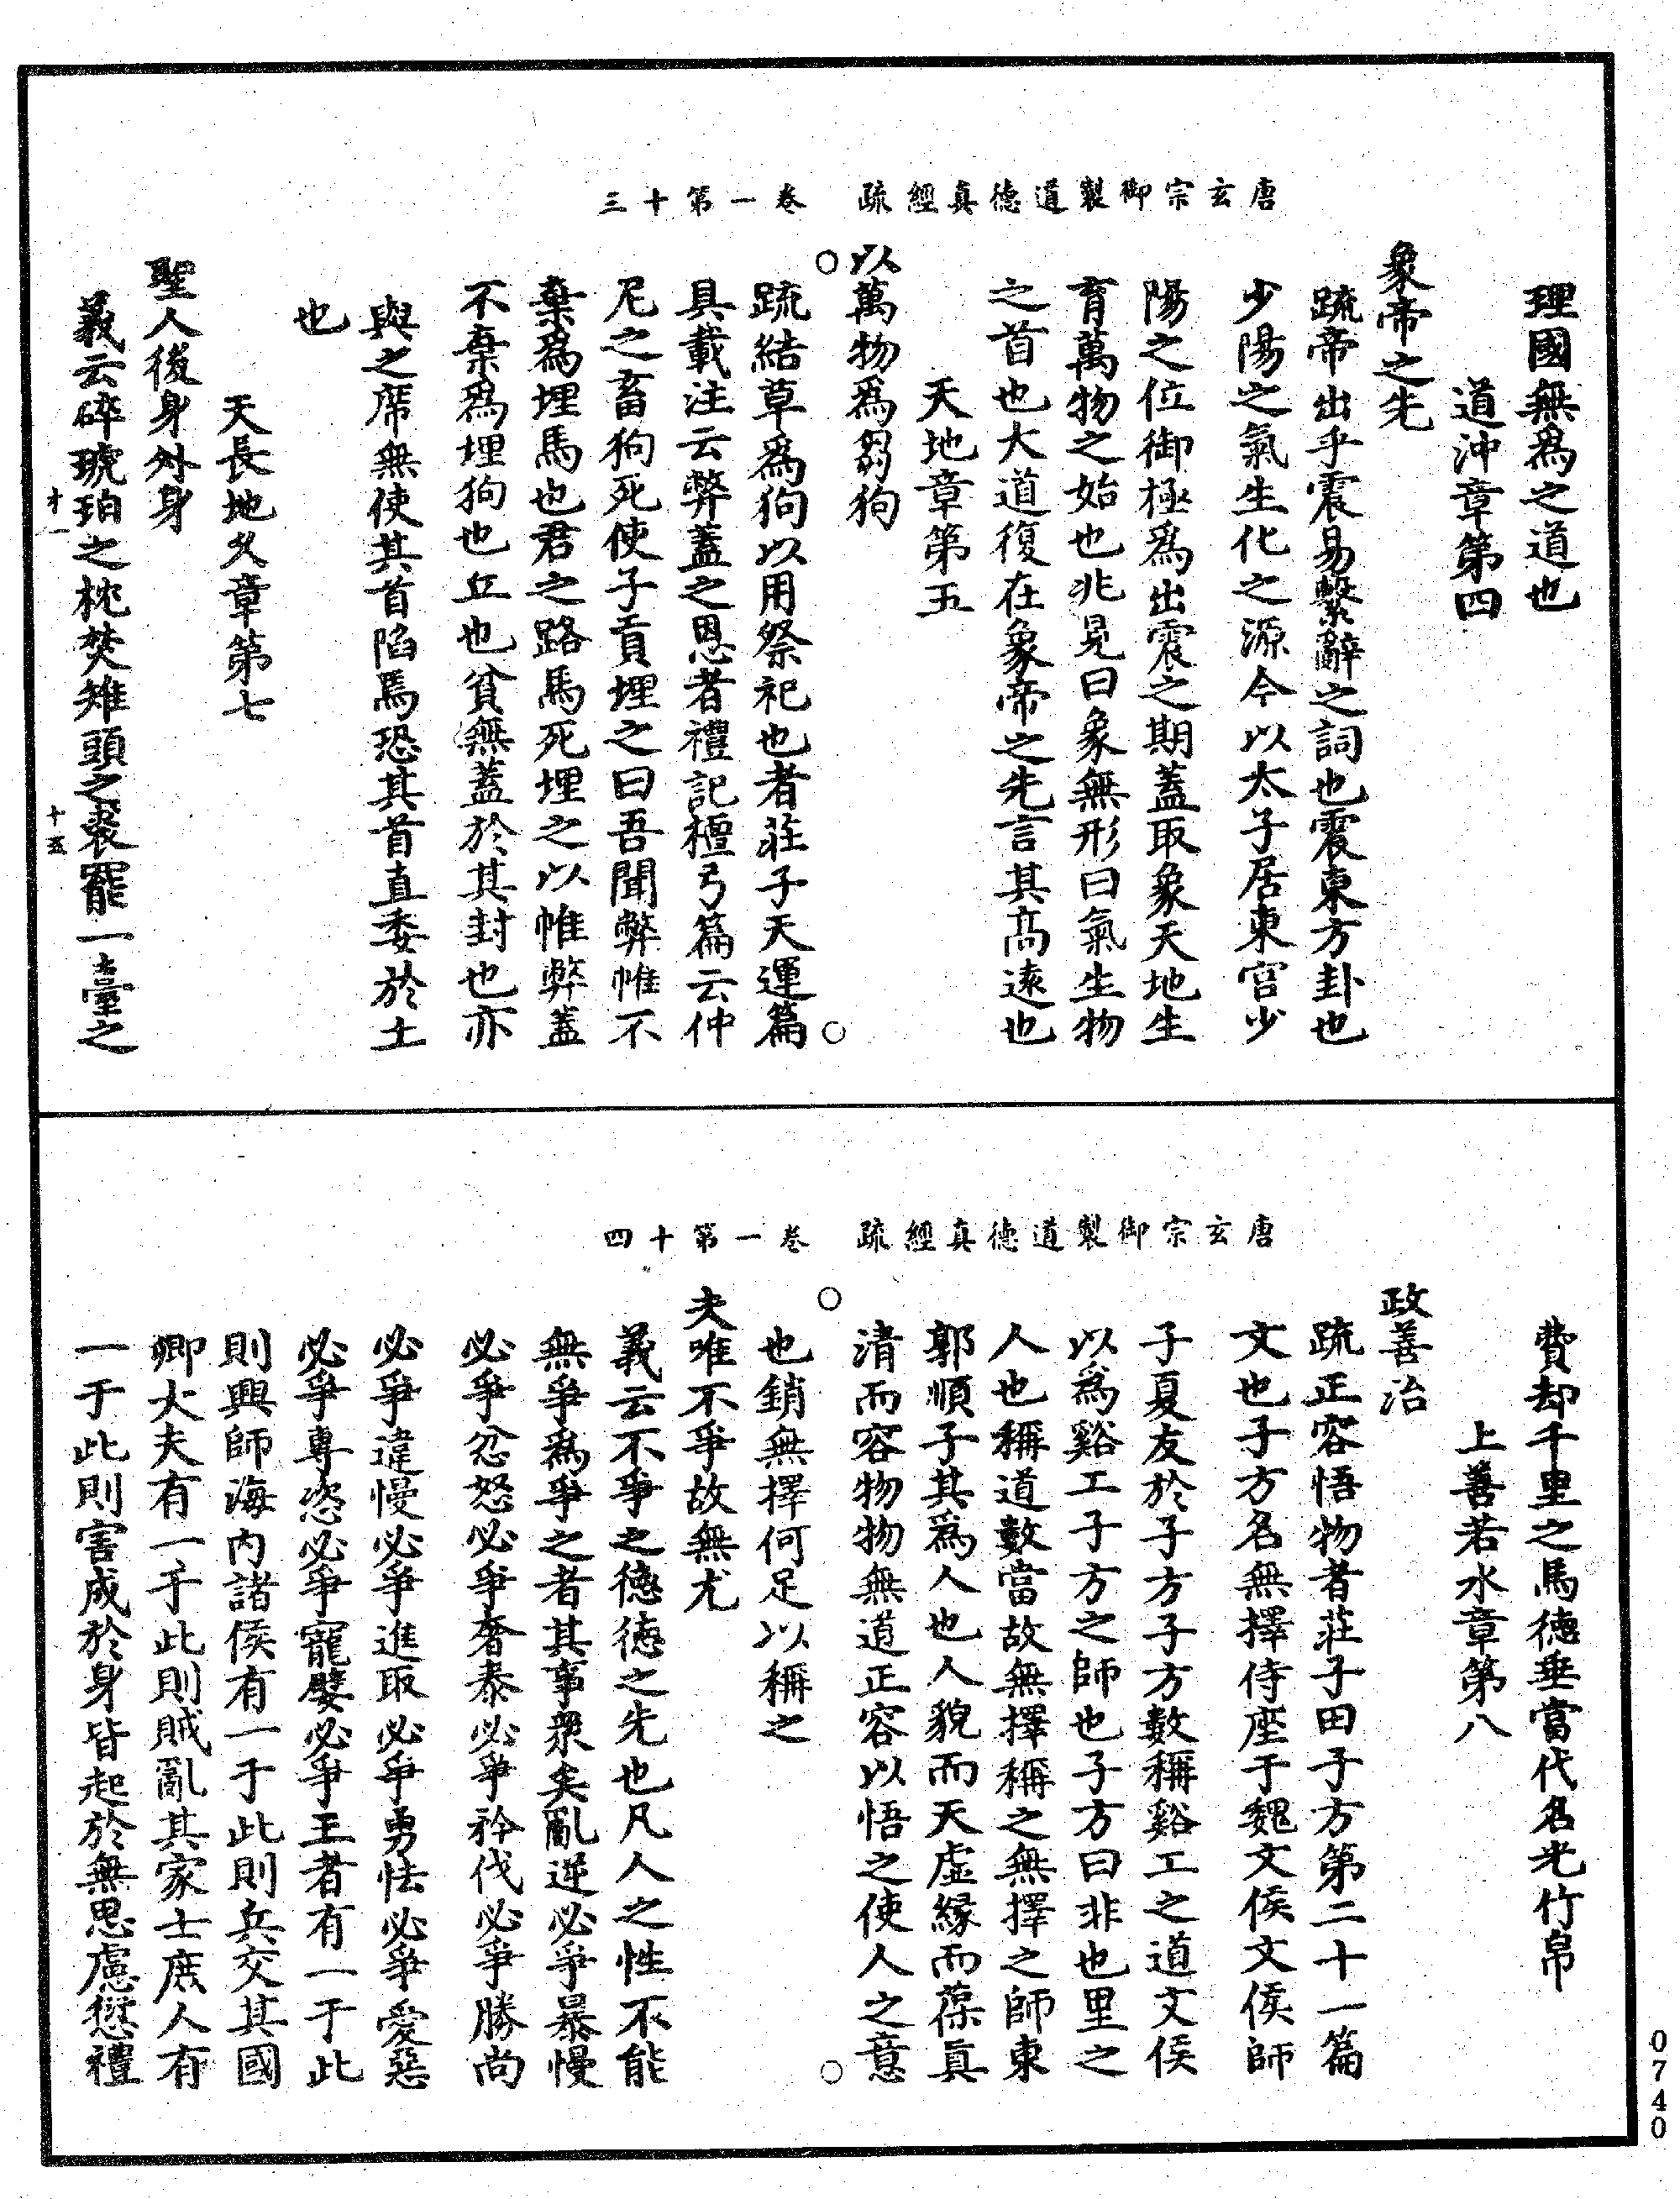 唐玄宗御製道德真經疏　卷一第十三
理國無為之道也
道沖章第四
象帝之先
疏帝出乎震易繫辭之詞也震東方卦也
少陽之氣生化之源今以太子居東宮少
陽之位御極為出震之期蓋取象天地生
育萬物之始也兆見曰象無形曰氣生物
之首也大道復在象帝之先言其高遠也
天地章第五
以萬物為芻狗
疏結草為狗以用祭祀也者莊子天運篇
具載注云弊蓋之恩者禮記檀弓篇云仲
尼之畜狗死使子貢埋之曰吾聞弊帷不
棄為埋馬也君之路馬死埋之以帷弊蓋
不棄為埋狗也丘也貧無蓋於其封也亦
與之席無使其首陷焉恐其首直委於土
也
天長地久章第七
聖人後身外身
義云碎琥珀之枕焚雉頭之裘罷一臺之
才一　十五
唐玄宗御製道德真經疏　卷一第十四
費却千里之馬德垂當代名光竹帛
上善若水章第八
政善治
疏正容悟物者莊子田子方第二十一篇
文也子方名無擇侍座于魏文侯文侯師
子夏友於子方子方數稱谿工之道文侯
以為谿工子方之師也子方曰非也里之
人也稱道數當故無擇稱之無擇之師東
郭順子其為人也人貌而天虛緣而葆真
清而容物物無道正容以悟之使人之意
也銷無擇何足以稱之
夫唯不爭故無尤
義云不爭之德德之先也凡人之性不能
無爭為爭之者其事眾矣亂逆必爭暴慢
必爭忿怒必爭奢泰必爭矜伐必爭勝尚
必爭違慢必爭進取必爭勇怯必爭愛惡
必爭專恣必爭寵嬖必爭王者有一于此
則興師海內諸侯有一于此則兵交其國
卿大夫有一于此則賊亂其家士庶人有
一于此則害成於身皆起於無思慮愆禮
0740